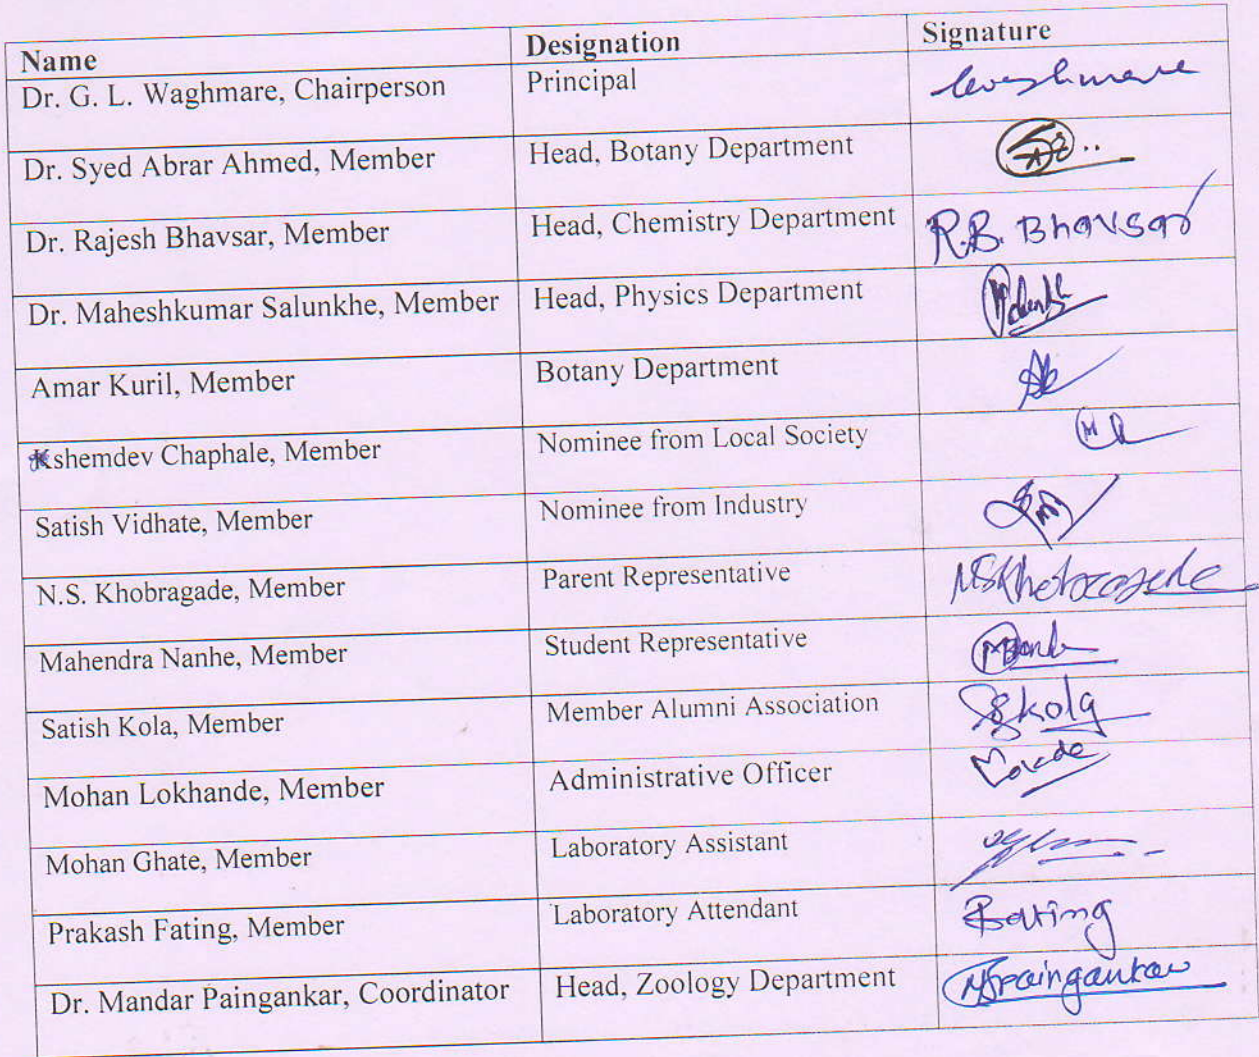 Name Designation Signature
Dr. G. L. Waghmare, Chairperson Principal
Dr. Syed Abrar Ahmed, Member Head, Botany Department
Dr. Rajesh Bhavsar, Member Head, Chemistry Department R.B. Bhavsar
Dr. Maheshkumar Salunkhe, Member Head, Physics Department
Amar Kuril, Member Botany Department
Kshemdev Chaphale, Member Nominee from Local Society
Satish Vidhate, Member Nominee from Industry
N.S. Khobragade, Member Parent Representative NSKhobragade
Mahendra Nanhe, Member Student Representative
Satish Kola, Member Member Alumni Association SKola
Mohan Lokhande, Member Administrative Officer
Mohan Ghate, Member Laboratory Assistant
Prakash Fating, Member Laboratory Attendant Fating
Dr. Mandar Paingankar, Coordinator Head, Zoology Department MSPaingankar